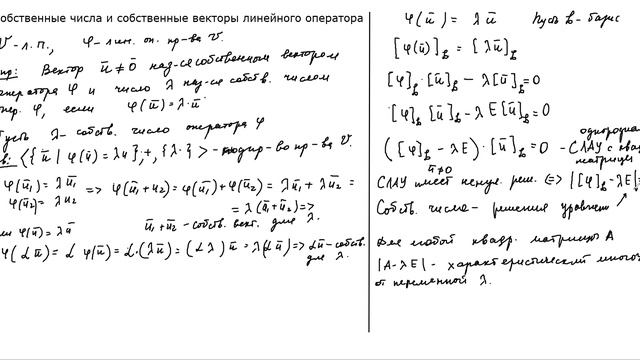 обственные числа и собственные векторы линейного оператора
V - л.п., φ - лин. оп. пр-ва V.
Вектор ū ≠ 0̄ наз-ся собственным вектором
оператора φ и число λ наз-ся собств. числом
опер. φ, если φ(ū) = λ·ū
Пусть λ - собств. число оператора φ
⟨{ū | φ(ū) = λu}, +, {λ·}⟩ - подпр-во пр-ва V.
φ(ū₁) = λū₁
φ(ū₂) = λu₂
=> φ(ū₁+u₂) = φ(ū₁)+φ(u₂) = λū₁ + λū₂ =
= λ(ū₁+ū₂) =>
ū₁+ū₂ - собств. вект. для λ.
φ(ū) = λū
φ(αū) = αφ(ū) = α·(λū) = (αλ)ū = λ(αū) => αū - собств.
для λ.
φ(ū) = λū Пусть b - базис
[φ(ū)]b = [λū]b
[φ]b·[ū]b - λ[ū]b = 0
[φ]b[ū]b - λE[ū]b = 0
однородна
([φ]b - λE)·[ū]b = 0 - СЛАУ с ква
матрицы
ū≠0
СЛАУ имеет ненул. реш. <=> |[φ]b - λE| =
Собств. числа - решения уравнен
Для любой квадр. матрицы A
|A - λE| - характеристический многоч
от переменной λ.